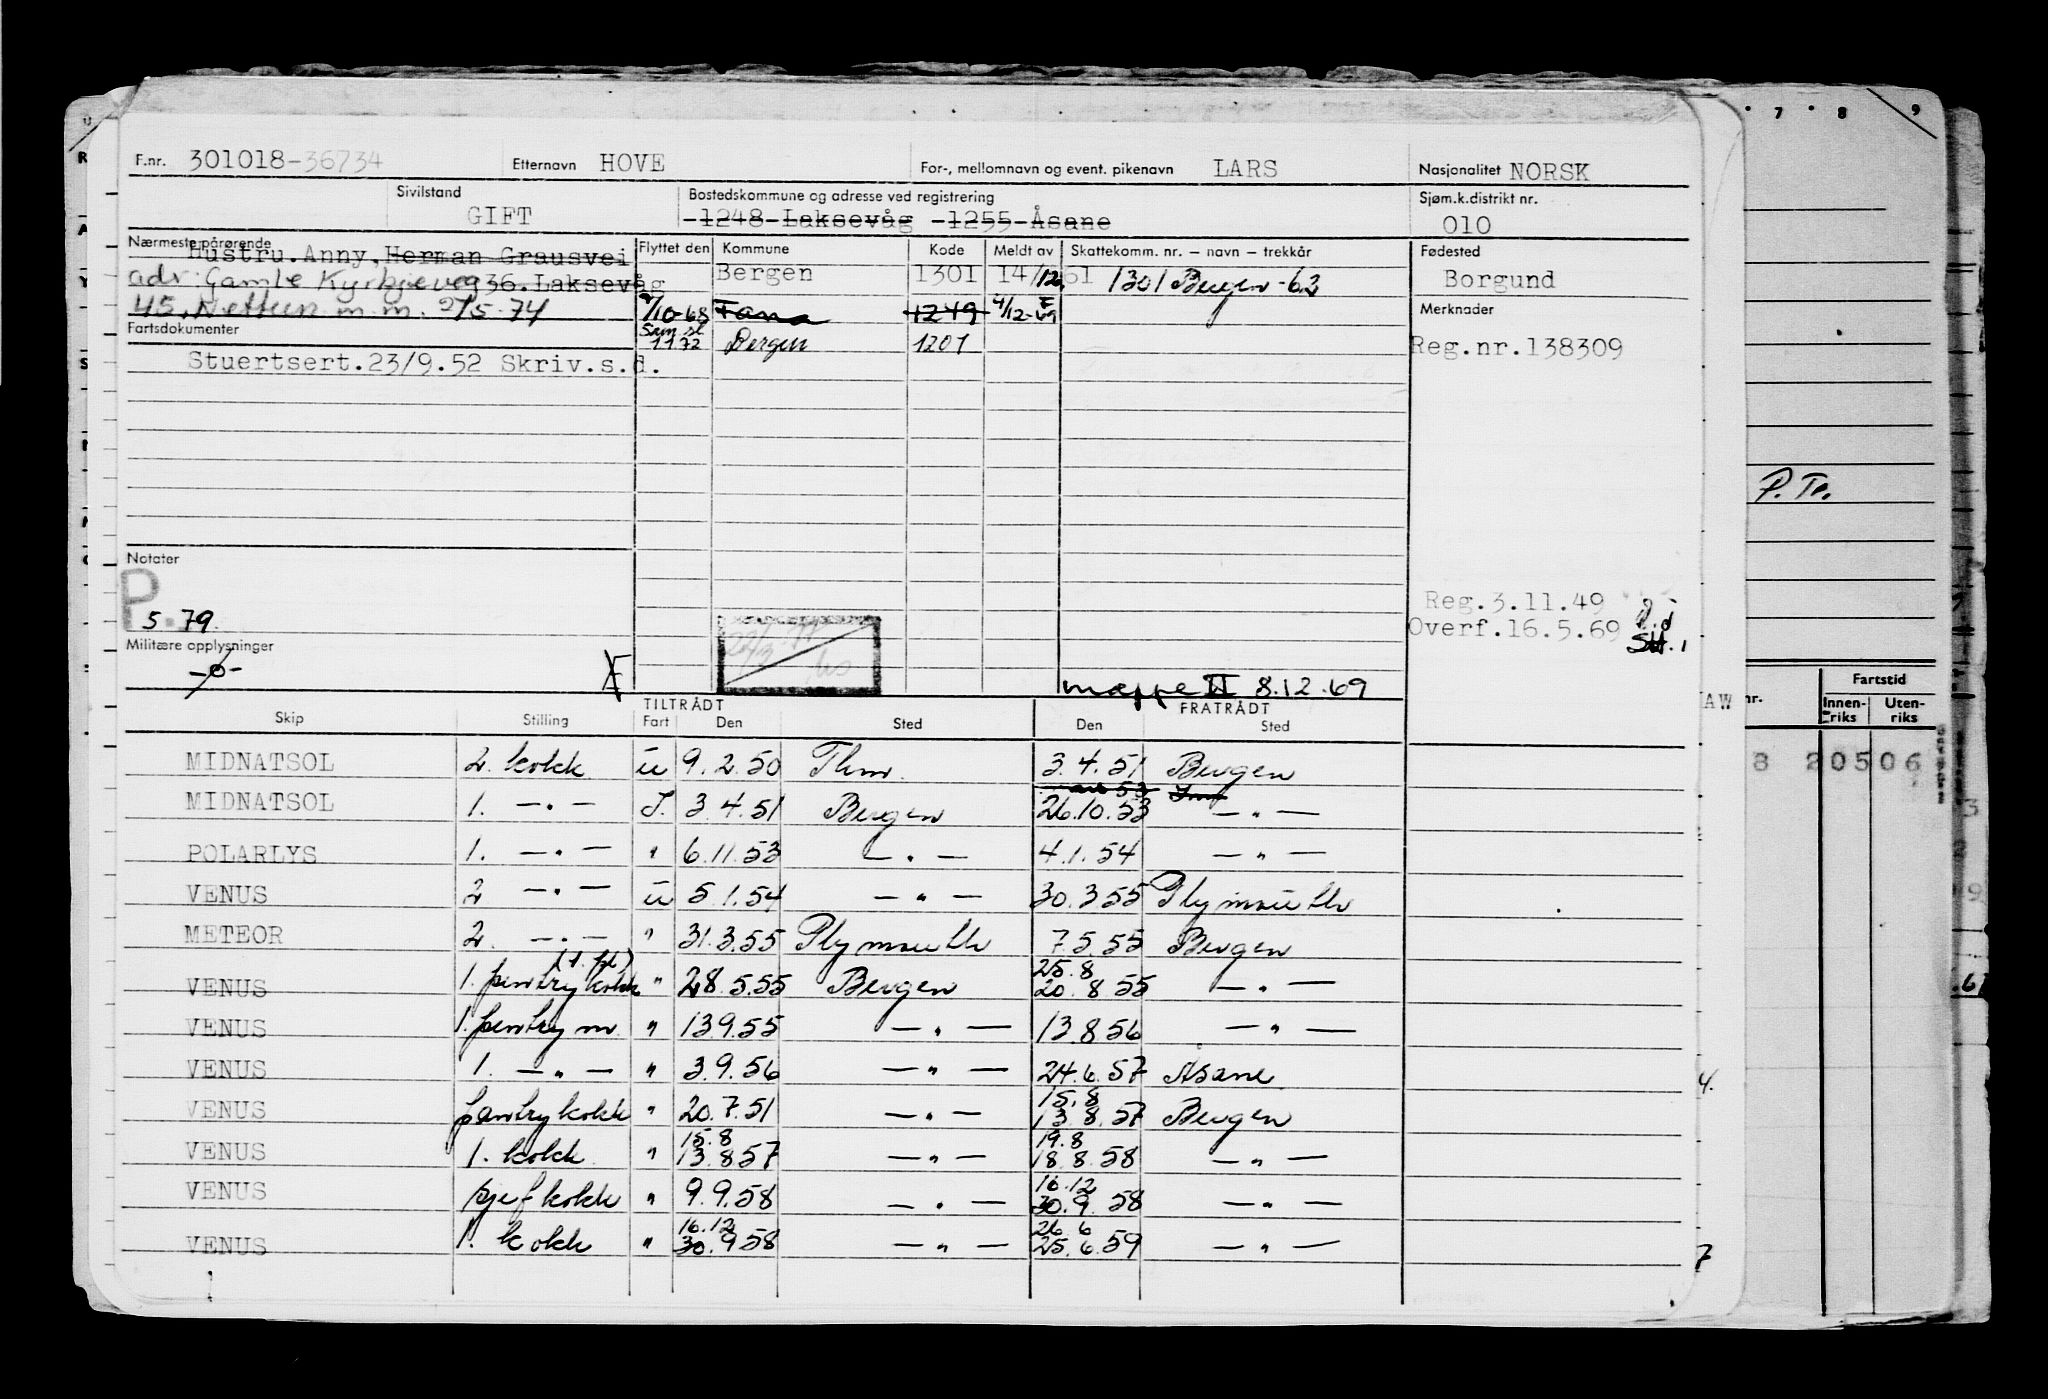 F.nr. 301018-36734 Etternavn HOVE For-, mellomnavn og event. pikenavn LARS Nasjonalitet NORSK
Sivilstand GIFT Bostedskommune og adresse ved registrering 1248 Laksevåg 1255 Åsane Sjøm.k.distrikt nr. 010
Nærmeste pårørende Flyttet den Kommune Kode Meldt av Skattekomm. nr. – navn – trekkår Fødested
Hustru. Anny, Herman Grausvei Bergen 1301 14/12 61 1301 Bergen -63 Borgund
adr: Gamle Kyrkjeveg 36. Laksevåg
45, Nettun m.m. 2/5-74 /10-68 Fana 1249 4/12-69 Merknader
Fartsdokumenter Sam.sl. 1172 Bergen 1201 Reg.nr.138309
Stuertsert.23/9.52 Skriv.s.d.
P. Tr.
Notater
P
5.79.
Reg.3.11.49
Overf.16.5.69
Militære opplysninger
mappe II 8.12.69
Skip Stilling TILTRÅDT Fart Den Sted FRATRÅDT Den Sted
MIDNATSOL 2. kokk u 9.2.50 Thm. 3.4.51 Bergen
MIDNATSOL 1. —〃— I. 3.4.51 Bergen 26.10.53 —〃—
POLARLYS 1. —〃— 〃 6.11.53 —〃— 4.1.54 —〃—
VENUS 2 —〃— u 5.1.54 —〃— 30.3.55 Plymouth
METEOR 2. —〃— 〃 31.3.55 Plymouth 7.5.55 Bergen
VENUS 1. pentrykokk 〃 28.5.55 Bergen 25.8 20.8.55 —〃—
VENUS 1. pentry m. 〃 13.9.55 —〃— 13.8.56 —〃—
VENUS 1. —〃— 〃 3.9.56 —〃— 24.6.57 Åsane
VENUS pentrykokk 〃 20.7.51 —〃— 15.8 13.8.57 Bergen
VENUS 1. kokk 〃 15.8 13.8.57 —〃— 19.8 18.8.58 —〃—
VENUS kjefkokk 〃 9.9.58 —〃— 16.12 30.9.58 —〃—
VENUS 1. kokk 〃 16.12 30.9.58 —〃— 26.6 25.6.59 —〃—
7 8 9
nr. Fartstid
Innen-riks Uten-riks
8 20506